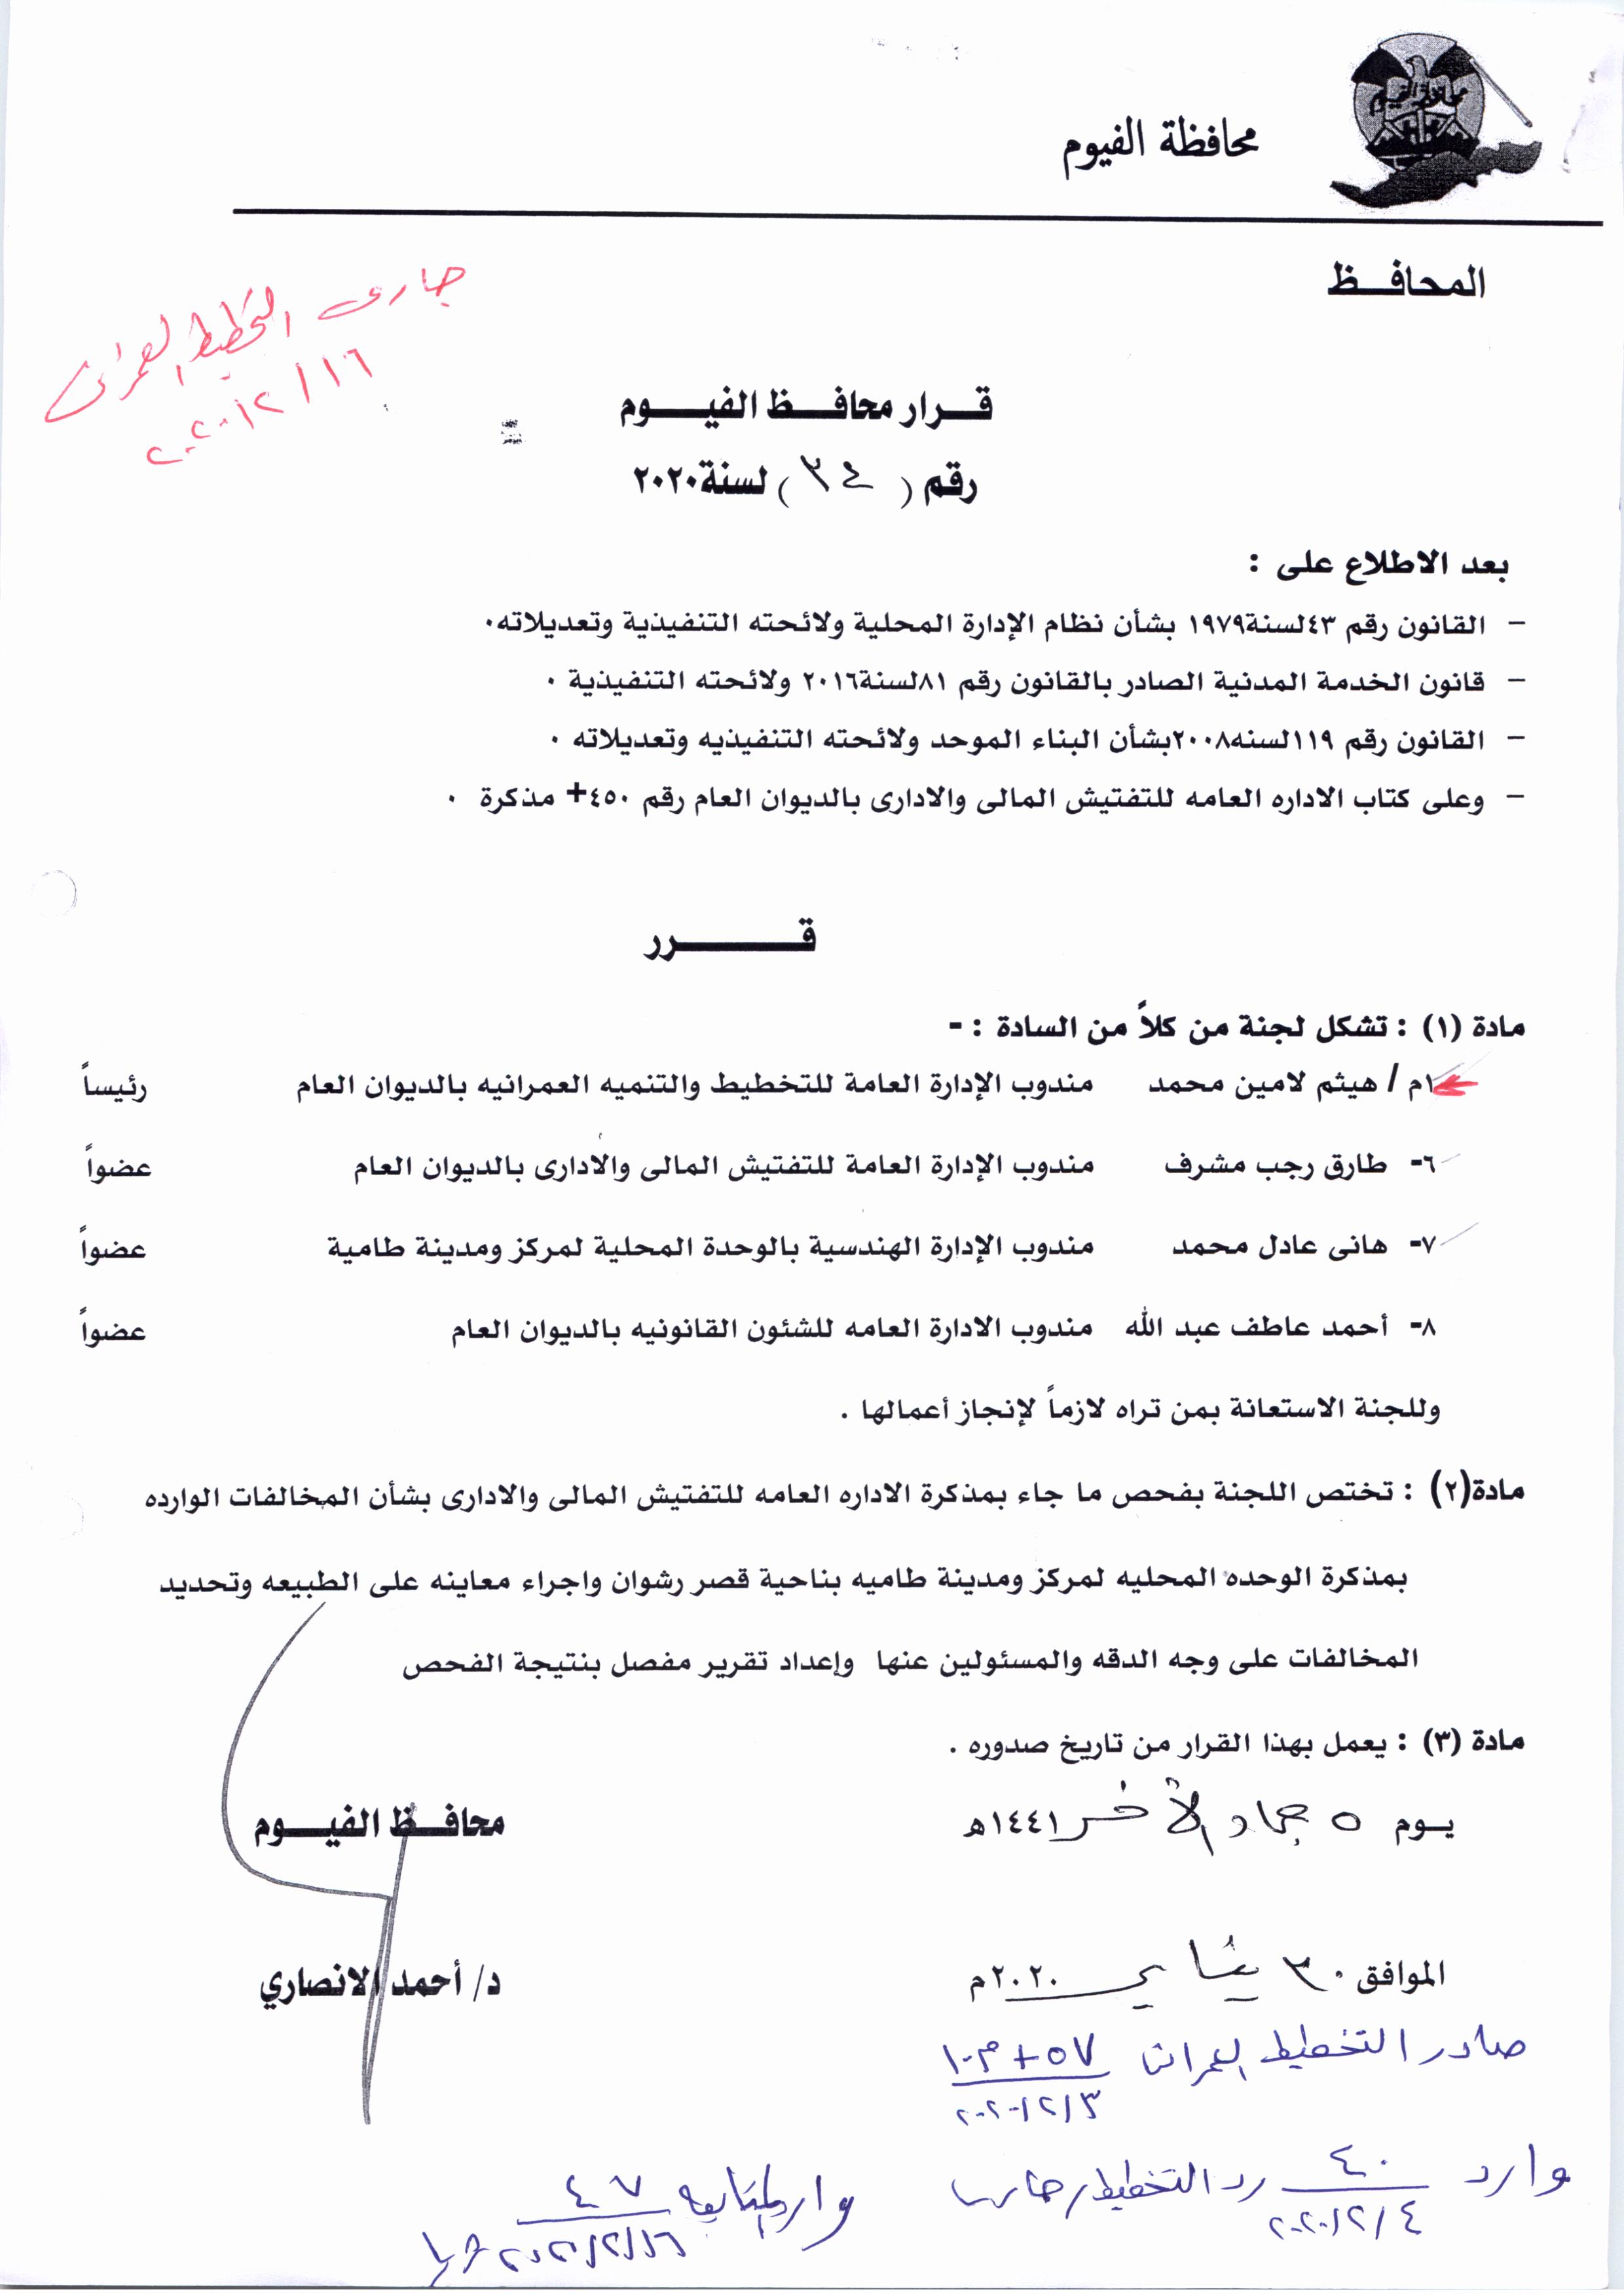 محافظة الفيوم
محافظة الفيوم
المحافـــظ
جارى التخطيط العمرانى
١٦/٢/٢٠٢٠
قـــرار محافـــظ الفيـــوم
رقم ( ٣٤ ) لسنة٢٠٢٠
بعد الاطلاع على :
- القانون رقم ٤٣لسنة١٩٧٩ بشأن نظام الإدارة المحلية ولائحته التنفيذية وتعديلاته٠
- قانون الخدمة المدنية الصادر بالقانون رقم ٨١لسنة٢٠١٦ ولائحته التنفيذية ٠
- القانون رقم ١١٩لسنه٢٠٠٨بشأن البناء الموحد ولائحته التنفيذيه وتعديلاته ٠
- وعلى كتاب الاداره العامه للتفتيش المالى والادارى بالديوان العام رقم ٤٥٠+ مذكرة ٠
قـــــــرر
مادة (١) : تشكل لجنة من كلاً من السادة : -
١م / هيثم لامين محمد مندوب الإدارة العامة للتخطيط والتنميه العمرانيه بالديوان العام رئيساً
٦- طارق رجب مشرف مندوب الإدارة العامة للتفتيش المالى والادارى بالديوان العام عضواً
٧- هانى عادل محمد مندوب الإدارة الهندسية بالوحدة المحلية لمركز ومدينة طامية عضواً
٨- أحمد عاطف عبد الله مندوب الادارة العامه للشئون القانونيه بالديوان العام عضواً
وللجنة الاستعانة بمن تراه لازماً لإنجاز أعمالها .
مادة(٢) : تختص اللجنة بفحص ما جاء بمذكرة الاداره العامه للتفتيش المالى والادارى بشأن المخالفات الوارده
بمذكرة الوحده المحليه لمركز ومدينة طاميه بناحية قصر رشوان واجراء معاينه على الطبيعه وتحديد
المخالفات على وجه الدقه والمسئولين عنها وإعداد تقرير مفصل بنتيجة الفحص
مادة (٣) : يعمل بهذا القرار من تاريخ صدوره .
يــوم ٥ جماد الآخر ١٤٤١هـ
محافـــظ الفيـــوم
الموافق ٣٠ يناير ٢٠٢٠م
د/ أحمد الانصاري
صادر التخطيط العمرانى ٥٧+١٠٣م
٣/٢/٢٠٢٠
وارد ٤٠ رد التخطيط
٤/٢/٢٠٢٠
وارد متابعه ٤٧
١٦/٢/٢٠٢٠